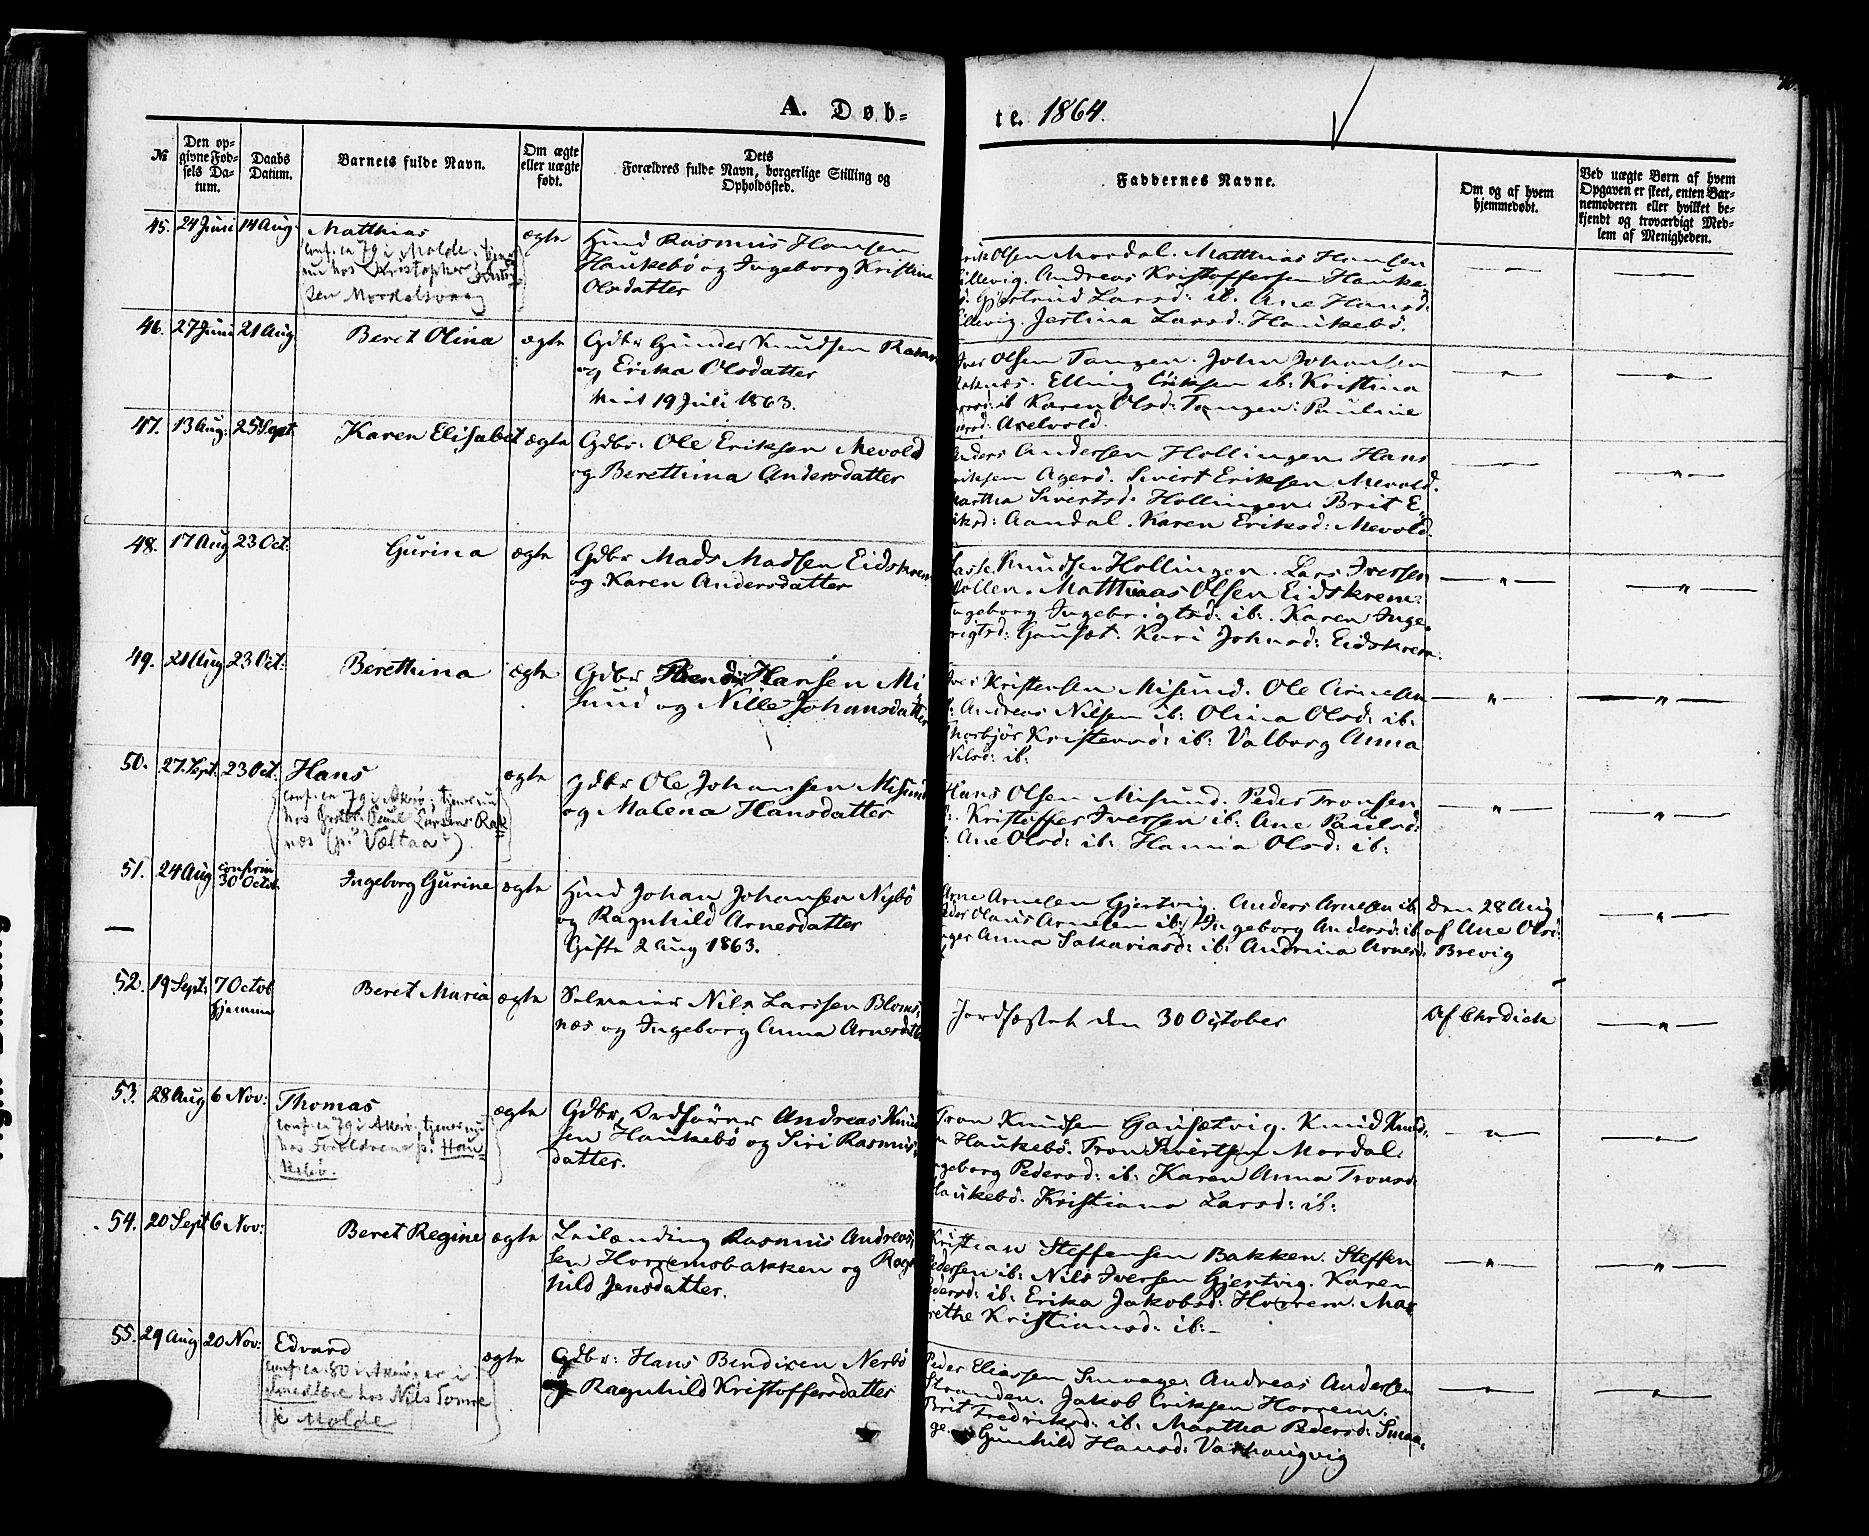 A. Døb-
te. 1864.
№
Den op-
givne Fød-
sels Da-
tum.
Daabs
Datum.
Barnets fulde Navn.
Om ægte
eller uægte
født.
Dets
Forældres fulde Navn, borgerlige Stilling og
Opholdssted.
Faddernes Navne.
Om og af hvem
hjemmedøbt.
Ved uægte Børn af hvem
Opgaven er skeet, enten Bar-
nemoderen eller hvilket be-
kjendt og troværdigt Med-
lem af Menigheden.
45. 24 Juni 14 Aug. Matthias ægte Huusm Rasmus Hansen
Conf. ca 79 i Molde
nu hos Kristopher
Haukebø og Ingeborg Kristine
Olsdatter
Olsen Mordal. Matthias Hansen
Andreas Kristoffersen Hauke-
Gjertrud Larsd: ib. Ane Hansd:
Jertina Larsd. Haukebø.
46. 27 Juni 21 Aug Beret Olina ægte Gdbr Gunder Knudsen
og Erika Olsdatter
viet 19 Juli 1863.
Olsen Tangen. John Johansen
Elling Eriksen ib: Kristina
ib Karen Olsd: Tangen: Pauline
Axelvold.
47. 13 Aug: 25 Sept Karen Elisabet ægte Gdbr. Ole Eriksen Mevold
og Berethina Andersdatter
Anders Andersen Hollingen Hans
Eriksen Agerø. Sivert Eriksen Mevold.
Martha Sivertsd: Hollingen Brit E-
riksd: Aandal. Karen Eriksd: Mevold.
48. 17 Aug 23 Oct: Gurina ægte Gdbr Mads Madsen Eidskrem
og Karen Andersdatter
Lasse Knudsen Hollingen. Lars Iversen
Mollen. Matthias Olsen Eidskrem:
Ingeborg Ingebrigtsd: ib: Karen Inge-
brigtsd: Gausæt. Kari Johnsd: Eidskrem.
49. 21 Aug 23 Oct: Berethina ægte Gdbr Hansen Mi
sund og Nille Johansdatter
Iver Kristensen Misund. Ole Arnesen
Andreas Nilsen ib: Olina Olsd: ib:
Thorbjør Kristensd: ib: Valborg Anna
Nilsd: ib:
50. 27. Sept. 23 Oct: Hans ægte Gdbr Ole Johansen Misund
Conf. ca 79 i Akerø; tjener nu
hos Gaardbr. Paul Larsens Rak
næs (p. "Væltaa")
og Malena Hansdatter
Hans Olsen Misund. Peder Tronsen
Kristoffer Iversen ib: Ane Paulsd:
Ane Olsd: ib: Hanna Olsd: ib:
51. 24 Aug confirm
30 Octob. Ingeborg Gurine ægte Huusm Johan Johansen Nybø
og Ragnhild Arnesdatter
Gifte 2 Aug 1863.
Arne Arnesen Gjertvig. Anders Arnesen ib:
Peder Olaus Arnesen ib: Ingeborg Andersd: ib.
Inger Anna Sakariasd: ib: Andrina Arnesd:
Den 28 Aug
af Ane Olsd:
Brevig
52. 19 Sept: 7 Octob
hjemme Beret Maria ægte Selveier Nils Larsen Bloms-
næs og Ingeborg Anna Arnesdatt
Jordfæstet den 30 October
Af Chr Dick
53. 28 Aug 6 Nov: Thomas ægte Gdbr, Ordfører Andreas Knud-
Conf ca 79 i Akerø, tjener nu
hos Forældrene p. Hau-
kebø.
sen Haukebø og Siri Rasmus-
datter.
Tron Knudsen Gausætvig. Knud Knud-
sen Haukebø. Tron Sivertsen Mordal.
Ingeborg Pedersd: ib: Karen Anna Tronsd:
Haukebø. Kristiana Larsd: ib:
54. 20 Sept 6 Nov: Beret Regine ægte Leilænding Rasmus Andreas-
sen Horremsbakken og Ragn-
hild Jensdatter.
Kristian Steffensen Bakken. Steffen
Pedersen ib: Nils Iversen Gjertvig. Karen
Pedersd: ib: Erika Jakobsd: Horrem. Mar-
grethe Kristiansd: ib:
55. 29 Aug 20 Nov: Edvard ægte Gdbr: Hans Bendixen Nerbø
Conf. ca 80 i Akerø er i
Smedlære hos Nils Tomre
je Molde
og Ragnhild Kristoffersdatter
Peder Eliassen Smvage. Andreas Andersen
Stranden. Jakob Eriksen Horrem.
Brit Fredriksd: ib: Martha Pedersd: Smaa-
ge. Gunhild Hansd: Varhaugvig